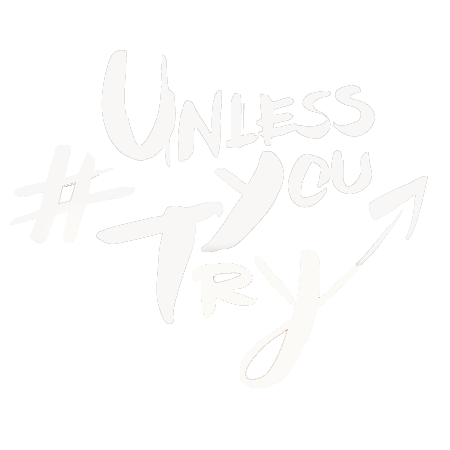 #UNLESS
YOU
TRY